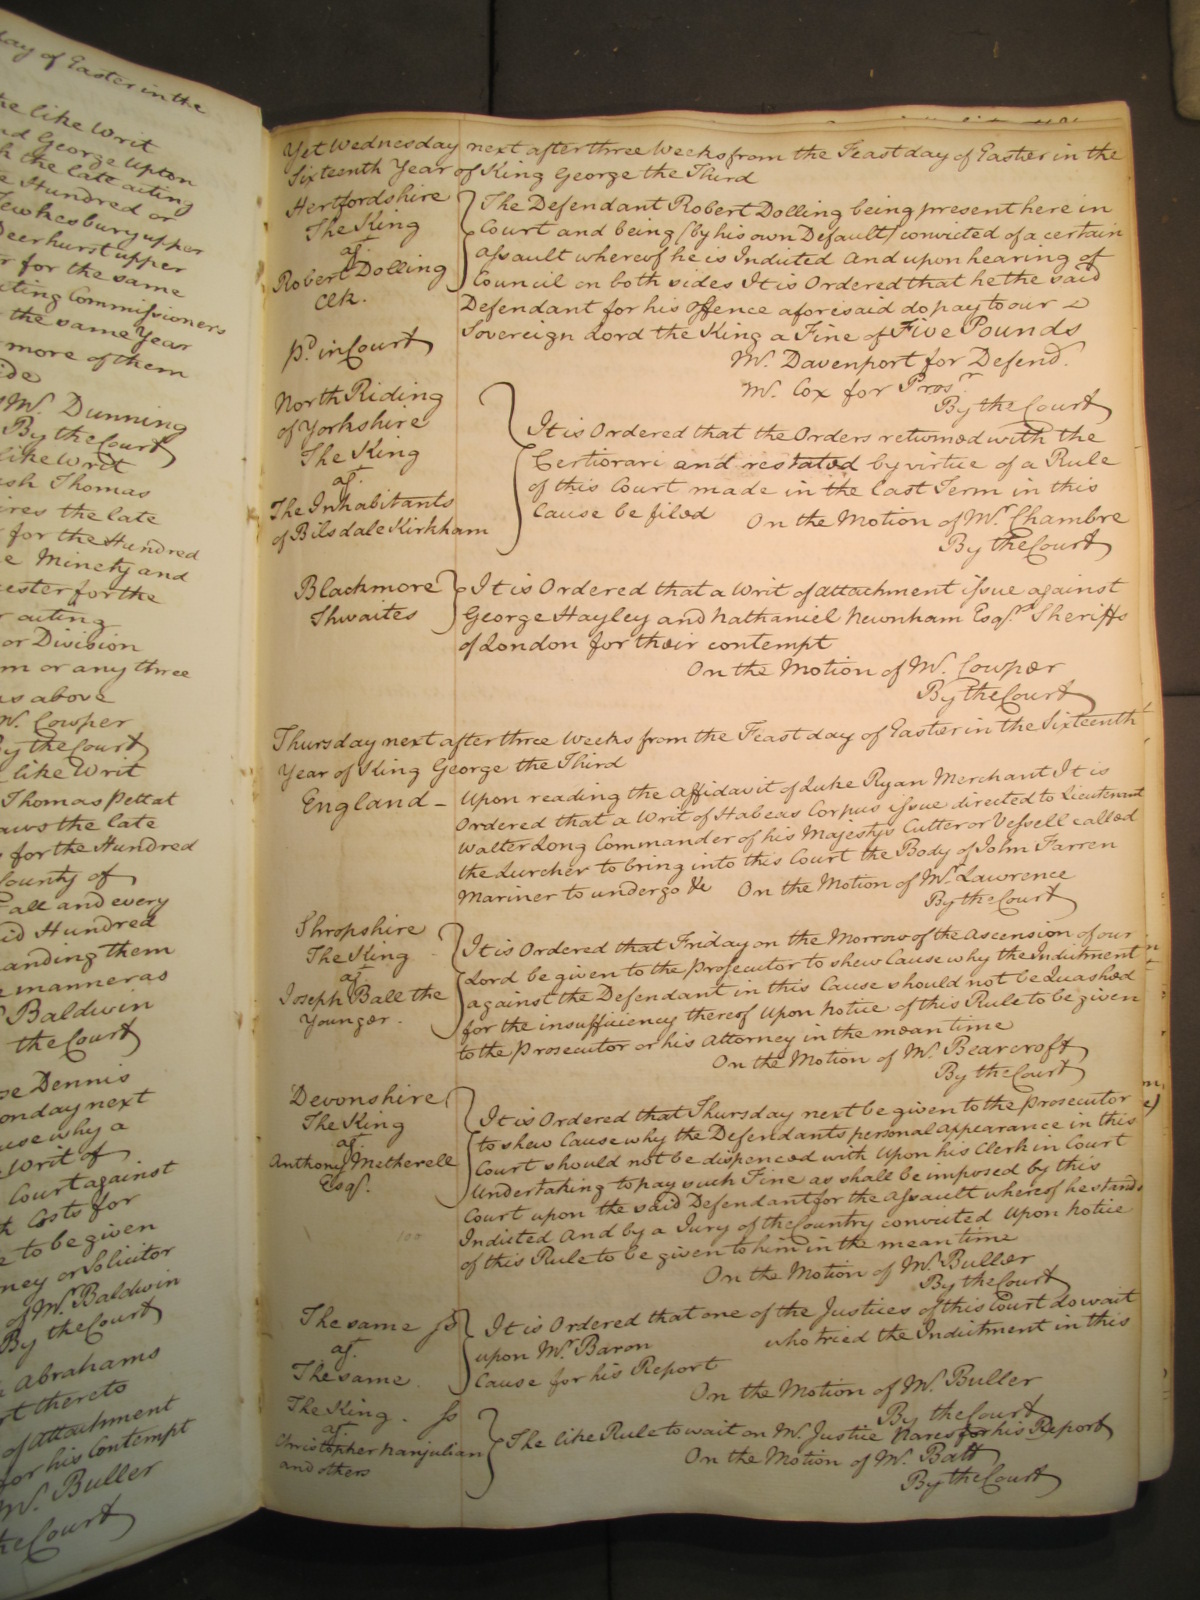 day of Easter in the
the like Writ
and George Upton
the late acting
Hundred or
Tewkesbury upper
Deerhurst upper
for the same
acting Commissioners
the same Year
more of them
Mr. Dunning
By the Court
like Writ
Thomas
the late
for the Hundred
Minety and
for the
acting
or Division
or any three
as above
Mr. Cowper
By the Court
like Writ
Thomas Pettat
the late
for the Hundred
County of
all and every
said Hundred
them
manner as
Baldwin
the Court
Dennis
Monday next
Cause why a
Writ of
Court against
Costs for
to be given
Attorney or Solicitor
of Mr. Baldwin
By the Court
Abrahams
thereto
of Attachment
for his Contempt
Mr. Buller
the Court
Yet Wednesday next after three Weeks from the Feast day of Easter in the
Sixteenth Year of King George the Third
Hertfordshire
The King
agt.
Robert Dolling
Clk.
Pd. in Court
The Defendant Robert Dolling being present here in
Court and being (by his own Default) convicted of a certain
Assault whereof he is Indicted And upon hearing of
Council on both sides It is Ordered that he the said
Defendant for his Offence aforesaid do pay to our
Sovereign Lord the King a Fine of Five Pounds
Mr. Davenport for Defend.
Mr. Cox for Prosr.
By the Court
North Riding
of Yorkshire
The King
agt.
The Inhabitants
of Bilsdale Kirkham
It is Ordered that the Orders returned with the
Certiorari and restated by virtue of a Rule
of this Court made in the last Term in this
Cause be filed On the Motion of Mr. Chambre
By the Court
Blackmore
Thwaites
It is Ordered that a Writ of attachment issue against
George Hayley and Nathaniel Newnham Esqrs. Sheriffs
of London for their contempt
On the Motion of Mr. Cowper
By the Court
Thursday next after three Weeks from the Feast day of Easter in the Sixteenth
Year of King George the Third
England – Upon reading the Affidavit of Luke Ryan Merchant It is
Ordered that a Writ of Habeas Corpus issue directed to Lieutenant
Walter Long Commander of his Majestys Cutter or Vessell called
the Lurcher to bring into this Court the Body of John Farren
Mariner to undergo &c On the Motion of Mr. Lawrence
By the Court
Shropshire
The King
agt.
Joseph Ball the
Younger.
It is Ordered that Friday on the Morrow of the Ascension of our
Lord be given to the Prosecutor to shew Cause why the Indictment
against the Defendant in this Cause should not be Quashed
for the insufficiency thereof Upon Notice of this Rule to be given
to the Prosecutor or his Attorney in the mean time
On the Motion of Mr. Bearcroft
By the Court
Devonshire
The King
agt.
Anthony Metherell
Esqr.
100
It is Ordered that Thursday next be given to the Prosecutor
to shew Cause why the Defendants personal Appearance in this
Court should not be dispenced with Upon his Clerk in Court
Undertaking to pay such Fine as shall be imposed by this
Court upon the said Defendant for the Assault whereof he stands
Indicted And by a Jury of the Country convicted Upon Notice
of this Rule to be given to him in the mean time
On the Motion of Mr. Buller
By the Court
The same
agt.
The same
It is Ordered that one of the Justices of this Court do wait
upon Mr. Baron who tried the Indictment in this
Cause for his Report
On the Motion of Mr. Buller
By the Court
The King.
agt.
Christopher Nanjulian
and others
The like Rule to wait on Mr. Justice Nares for his Report
On the Motion of Mr. Batt
By the Court